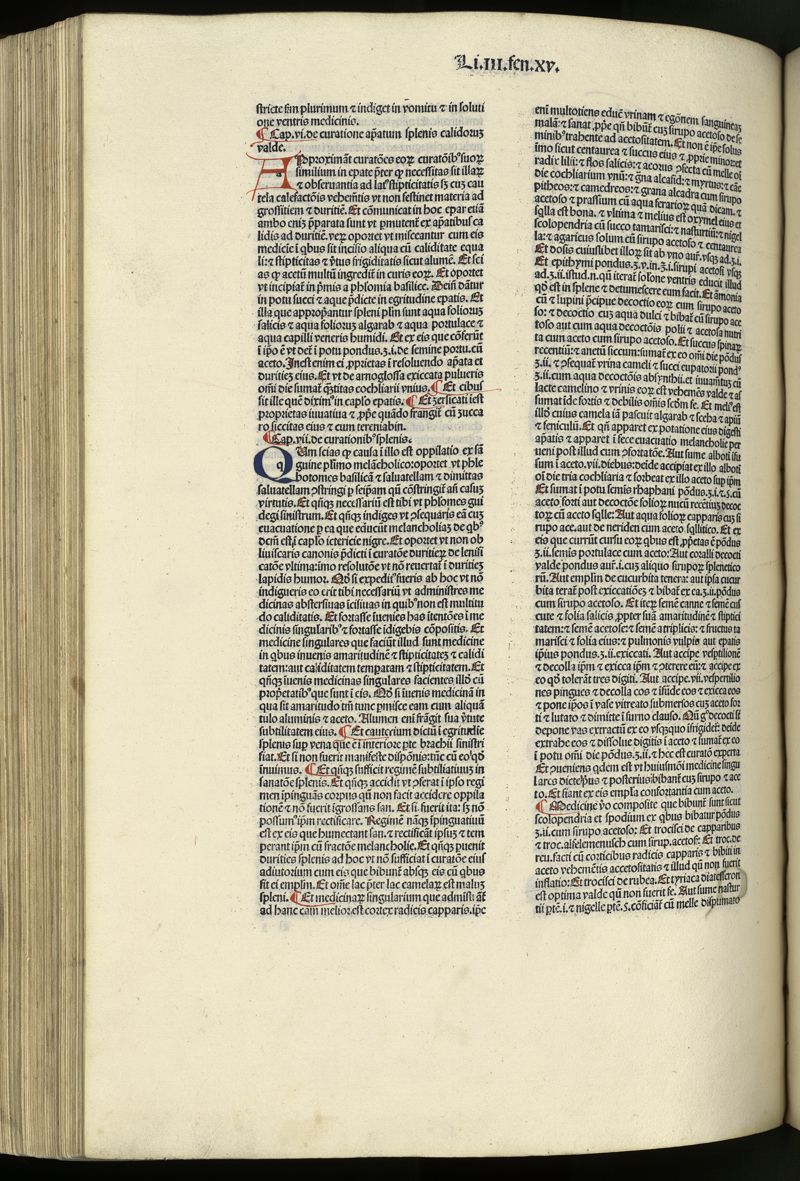 Li.III.fen.xv.
stricte sm̄ plurimum ⁊ indiget in vomitu ⁊ in soluti
one ventris medicinis.
¶ Cap.vi.de curatione apatum splenis calidorum
valde.
APproximāt curatōes eoꝝ curatōibꝰ suoꝝ
similium in epate pter ꝙ necessitas sit illaꝝ
⁊ obseruantia ad latꝰ stipticitatis sꝫ cuꝫ cau
tela calefactōis vehemētis vt non festinet materia ad
grossitiem ⁊ duritiē. Et cōmunicat in hoc epar etiā
ambo enī pparata sunt vt pmutent ex apatibus ca
lidis ad duritiē. veꝝ oportet vt misceantur cum eis
medicie ī qbus sit incisio aliqua cū caliditate equa
li: ⁊ stipticitas ⁊ vtus frigiditatis sicut alumē. Et sci
as ꝙ acetū multū ingredit in curis eoꝝ. Et oportet
vt incipiat in pmis a phlsomia basilice. Dein dātur
in potu succi ⁊ aque pdicte in egritudine epatis. Et
illa que appropantur spleni plim sunt aqua folioruꝫ
salicis ⁊ aqua folioruꝫ algarab ⁊ aqua portulace ⁊
aqua capilli veneris humidi. Et ex eis que cōferūt
ī ipo ē vt det ī potu pondus.ʒ.i.de semine portu.cū
aceto. Inest enim ei pprietas ī resoluendo apata et
duritieꝫ eius. Et vt de arnoglossa exiccata pulueris
omi die sumat qtitas cochlearii vnius. ¶ Et cibus
sit ille quē diximꝰ in caplo epatis. ¶ Et ʒersicati iest
proprietas iuuatiua ⁊ ppe quādo frangit cū zucca
ro siccitas eius ⁊ cum tereniabin.
¶ Cap.vii.de curationibꝰ splenis.
QUm scias ꝙ causa ī illo est oppilatio ex sā
guine plimo melācholico: oportet vt phle
botomes basilicā ⁊ saluatellam ⁊ dimittas
saluatellam ꝯstringi p seipam qn cōstringit an casuꝫ
virtutis. Et qnqꝫ necessariū est tibi vt phlsomes gui
degi sinistrum. Et qnqꝫ indiges vt ꝯsequaris eā cuꝫ
euacuatione p ea que educūt melancholiaꝫ de qbꝰ
dcm est ī caplo ictericie nigre. Et oportet vt non ob
liuiscaris canonis pdicti ī curatōe duritieꝝ de lenifi
catōe vltima: imo resolutōe vt nō reuertat ī duritieꝫ
lapidis humor. Qd si expedi fueris ab hoc vt nō
indigueris eo erit tibi necessariū vt administres me
dicinas abstersiuas icisiuas in quibꝰ non est multitu
do caliditatis. Et fortasse inuenies has itentōes ī me
dicinis singularibꝰ ⁊ fortasse idigebis cōpositis. Et
medicine singulares que faciūt illud sunt medicine
in qbus inuenis amaritudinē ⁊ stipticitatē ⁊ calidi
tatem: aut caliditatem tempatam ⁊ stipticitatem. Et
qnqꝫ iuenis medicinas singulares facientes illd cū
propetatibꝰ que sunt ī eis. Qd si iuenis medicinā in
qua sit amaritudo tm tunc pmisce eam cum aliqua
tulo aluminis ⁊ aceto. Alumen eni frāgit sua vtute
subtilitatem eius. ¶ Et cauterium dictū ī egritudie
splenis sup vena que ē ī interiore pte brachii sinistri
fiat. Et si non fuerit manifeste dispōnis: tūc cū eoqd
inuimus. ¶ Et qnqꝫ sufficit regimē subtiliatiuuꝫ in
sanatōne splenis. Et qnqꝫ accidit vt ꝯferat ī ipso regi
men īpinguās corpus qn non facit accidere oppila
tionē ⁊ nō fuerit īgrossans san. Et si fuerit ita: sꝫ nō
possumꝰ ipm rectificare. Regimē nāqꝫ īpinguatiuū
est ex eis que humectant san.⁊ rectificāt ipsuꝫ ⁊ tem
perant ipm cū fractōe melancholie. Et qnqꝫ puenit
durities splenis ad hoc vt nō sufficiat ī curatōe eius
adiutorium cum eis que bibunt absqꝫ eis cū qbus
fit ei emplm. Et ome lac pter lac camelaꝝ est maluꝫ
spleni. ¶ Et medicinaꝝ singularium que admist ant
ad hanc cam melior est cortex radicis capparis. ipe
eni multotiens educit vrinam ⁊ egonem sanguineaꝫ
malā: ⁊ sanat ppe qn bibut cuꝫ sirupo acetoso de se
minibꝰ trahente ad acetositatem. Et non ī ipe solus
imo sicut centaurea ⁊ succus eius ⁊ pprie minor et
radix lilii: ⁊ flos salicis: ⁊ acorus ꝯfecta cū melle oi
die cochliarium vnū: ⁊ gna alcasid: ⁊ myrtus: ⁊ cāe
pitheos: ⁊ camedreos: ⁊ grana alcadra cum sirupo
acetoso ⁊ prassium cū aqua ferarioꝝ quā dicam. ⁊
sqlla est bona. ⁊ vltima ⁊ melius est oxymel eius et
scolopendria cū succo tamarisci: ⁊ nasturtiū: ⁊ nigel
la: ⁊ agaricus solum cū sirupo acetoso ⁊ centaurea
Et dosis cuiuslibet illoꝝ sit ab vno aur.vsqꝫ ad.ʒ.i.
Et epithymi pondus.ʒ.v.in.ʒ.i.sirupi acetosi vsqꝫ
ad.ʒ.ii.istud.n.qn iterat solone ventris educit illud
qd est in splene ⁊ detumescere eum facit. Et āmonia
cū ⁊ lupini pcipue decoctio eoꝝ cum sirupo aceto
so: ⁊ decoctio cuꝫ aqua dulci ⁊ bibat cū sirupo ace
toso aut cum aqua decoctōis polii ⁊ acetosa nutri
ta cum aceto cum sirupo acetoso. Et succus spinaꝝ
recentiū: ⁊ anetū siccum: sumat ex eo omi die pōdus
ʒ.ii.⁊ ꝯsequat vrina cameli ⁊ succi eupatorii pondꝰ
ʒ.ii.cum aqua decoctōis absynthii. et iuuātiuꝫ cū
lacte camelino ⁊ vrinis eoꝝ est vehemēs valde ⁊ as
sumat ide fortis ⁊ debilis omis scdm se. Et meliꝰ est
illd cuius camela iā pascuit algarab ⁊ sceba ⁊ apiū
⁊ feniculū. Et qn apparet ex potatione eius digesti
apatis ⁊ apparet ī sece euacuatio melancholie per
ueni post illud cum ꝯfortatōe. Aut sume alboti assu
sum ī aceto.vii.diebus: deide accipiat ex illo alboti
oi die tria cochliaria ⁊ sorbeat ex illo aceto sup ipm
Et sumat ī potu semis rhaphani pōdus.ʒ.i.⁊.s.cū
aceto forti aut decoctōe folioꝝ nucū recētiuꝫ decoc
toꝝ cū aceto sqlle: Aut aqua folioꝝ capparis cuꝫ si
rupo ace. aut de neriden cum aceto sqllitico. Et ex
eis que currūt cursu eoꝝ qbus est ppetas ē pōdus
ʒ.ii.semis portulace cum aceto: Aut coralli decocti
valde pondus aur.i.cuꝫ aliquo sirupoꝝ spleneticо
rū. Aut emplm de cucurbita tenera: aut ipsa cucur
bita terat post exiccationeꝫ ⁊ bibat ex ea.ʒ.ii.pōdus
cum sirupo acetoso. Et iteꝝ semē canne ⁊ semē cus
cute ⁊ folia salicis ppter suā amaritudinē ⁊ stiptici
tatem: ⁊ semē acetose: ⁊ semē atriplicis: ⁊ fructus ta
marisci ⁊ folia eius: ⁊ pulmonis vulpis aut epatis
ipius pondus.ʒ.ii.exiccati. Aut accipe vespilionē
⁊ decolla ipm ⁊ exicca ipm ⁊ ꝯterere eū: ⁊ accipe ex
eo qd tolerāt tres digiti. Aut accipe.vii.vespertilio
nes pingues ⁊ decolla eos ⁊ ifūde eos ⁊ exicca eos
⁊ pone ipos ī vase vitreato submersos cuꝫ aceto for
ti ⁊ lutato ⁊ dimitte ī furno clauso. Qn gꝰ decocti sīt
depone vas extractū ex eo vsqꝫquo ifrigidet: deide
extrahe eos ⁊ dissolue digitis ī aceto ⁊ sumat ex eo
ī potu omi die pōdus.ʒ.ii.⁊ hec est curatō experta
Et ꝯueniens qdem est vt huiusmōi medicine singu
lares dictepꝰus ⁊ posterius bibant cuꝫ sirupo ⁊ ace
to. Et fiant ex eis empla confortantia cum aceto.
¶ Medicine vo composite que bibunt sunt sicut
scolopendria et spodium ex qbus bibatur pōdus
ʒ.ii.cum sirupo acetoso: Et trocisci de capparibus
⁊ troc.alselemenusch cum sirup.acetoso: Et troc.de
reu.facti cū corticibus radicis capparis ⁊ bibiti in
aceto vehemētis acetositatis ⁊ illud qn non fuerit
inflatio: Et trocisci de rubea. Et tyriaca diatesseron
est optima valde qn non fuerit fe. Aut sume nastur
tii pte.i.⁊ nigelle pte.s.cōficiat cū melle dispumato